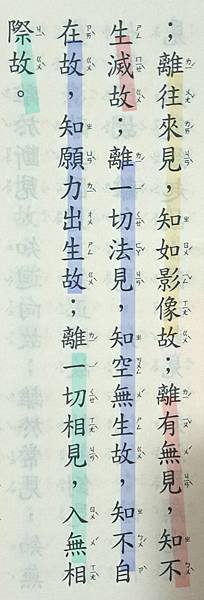 ；離往來見，知如影像故；離有無見，知不
生滅故；離一切法見，知空無生故，知不自
在故，知願力出生故；離一切相見，入無相
際故。